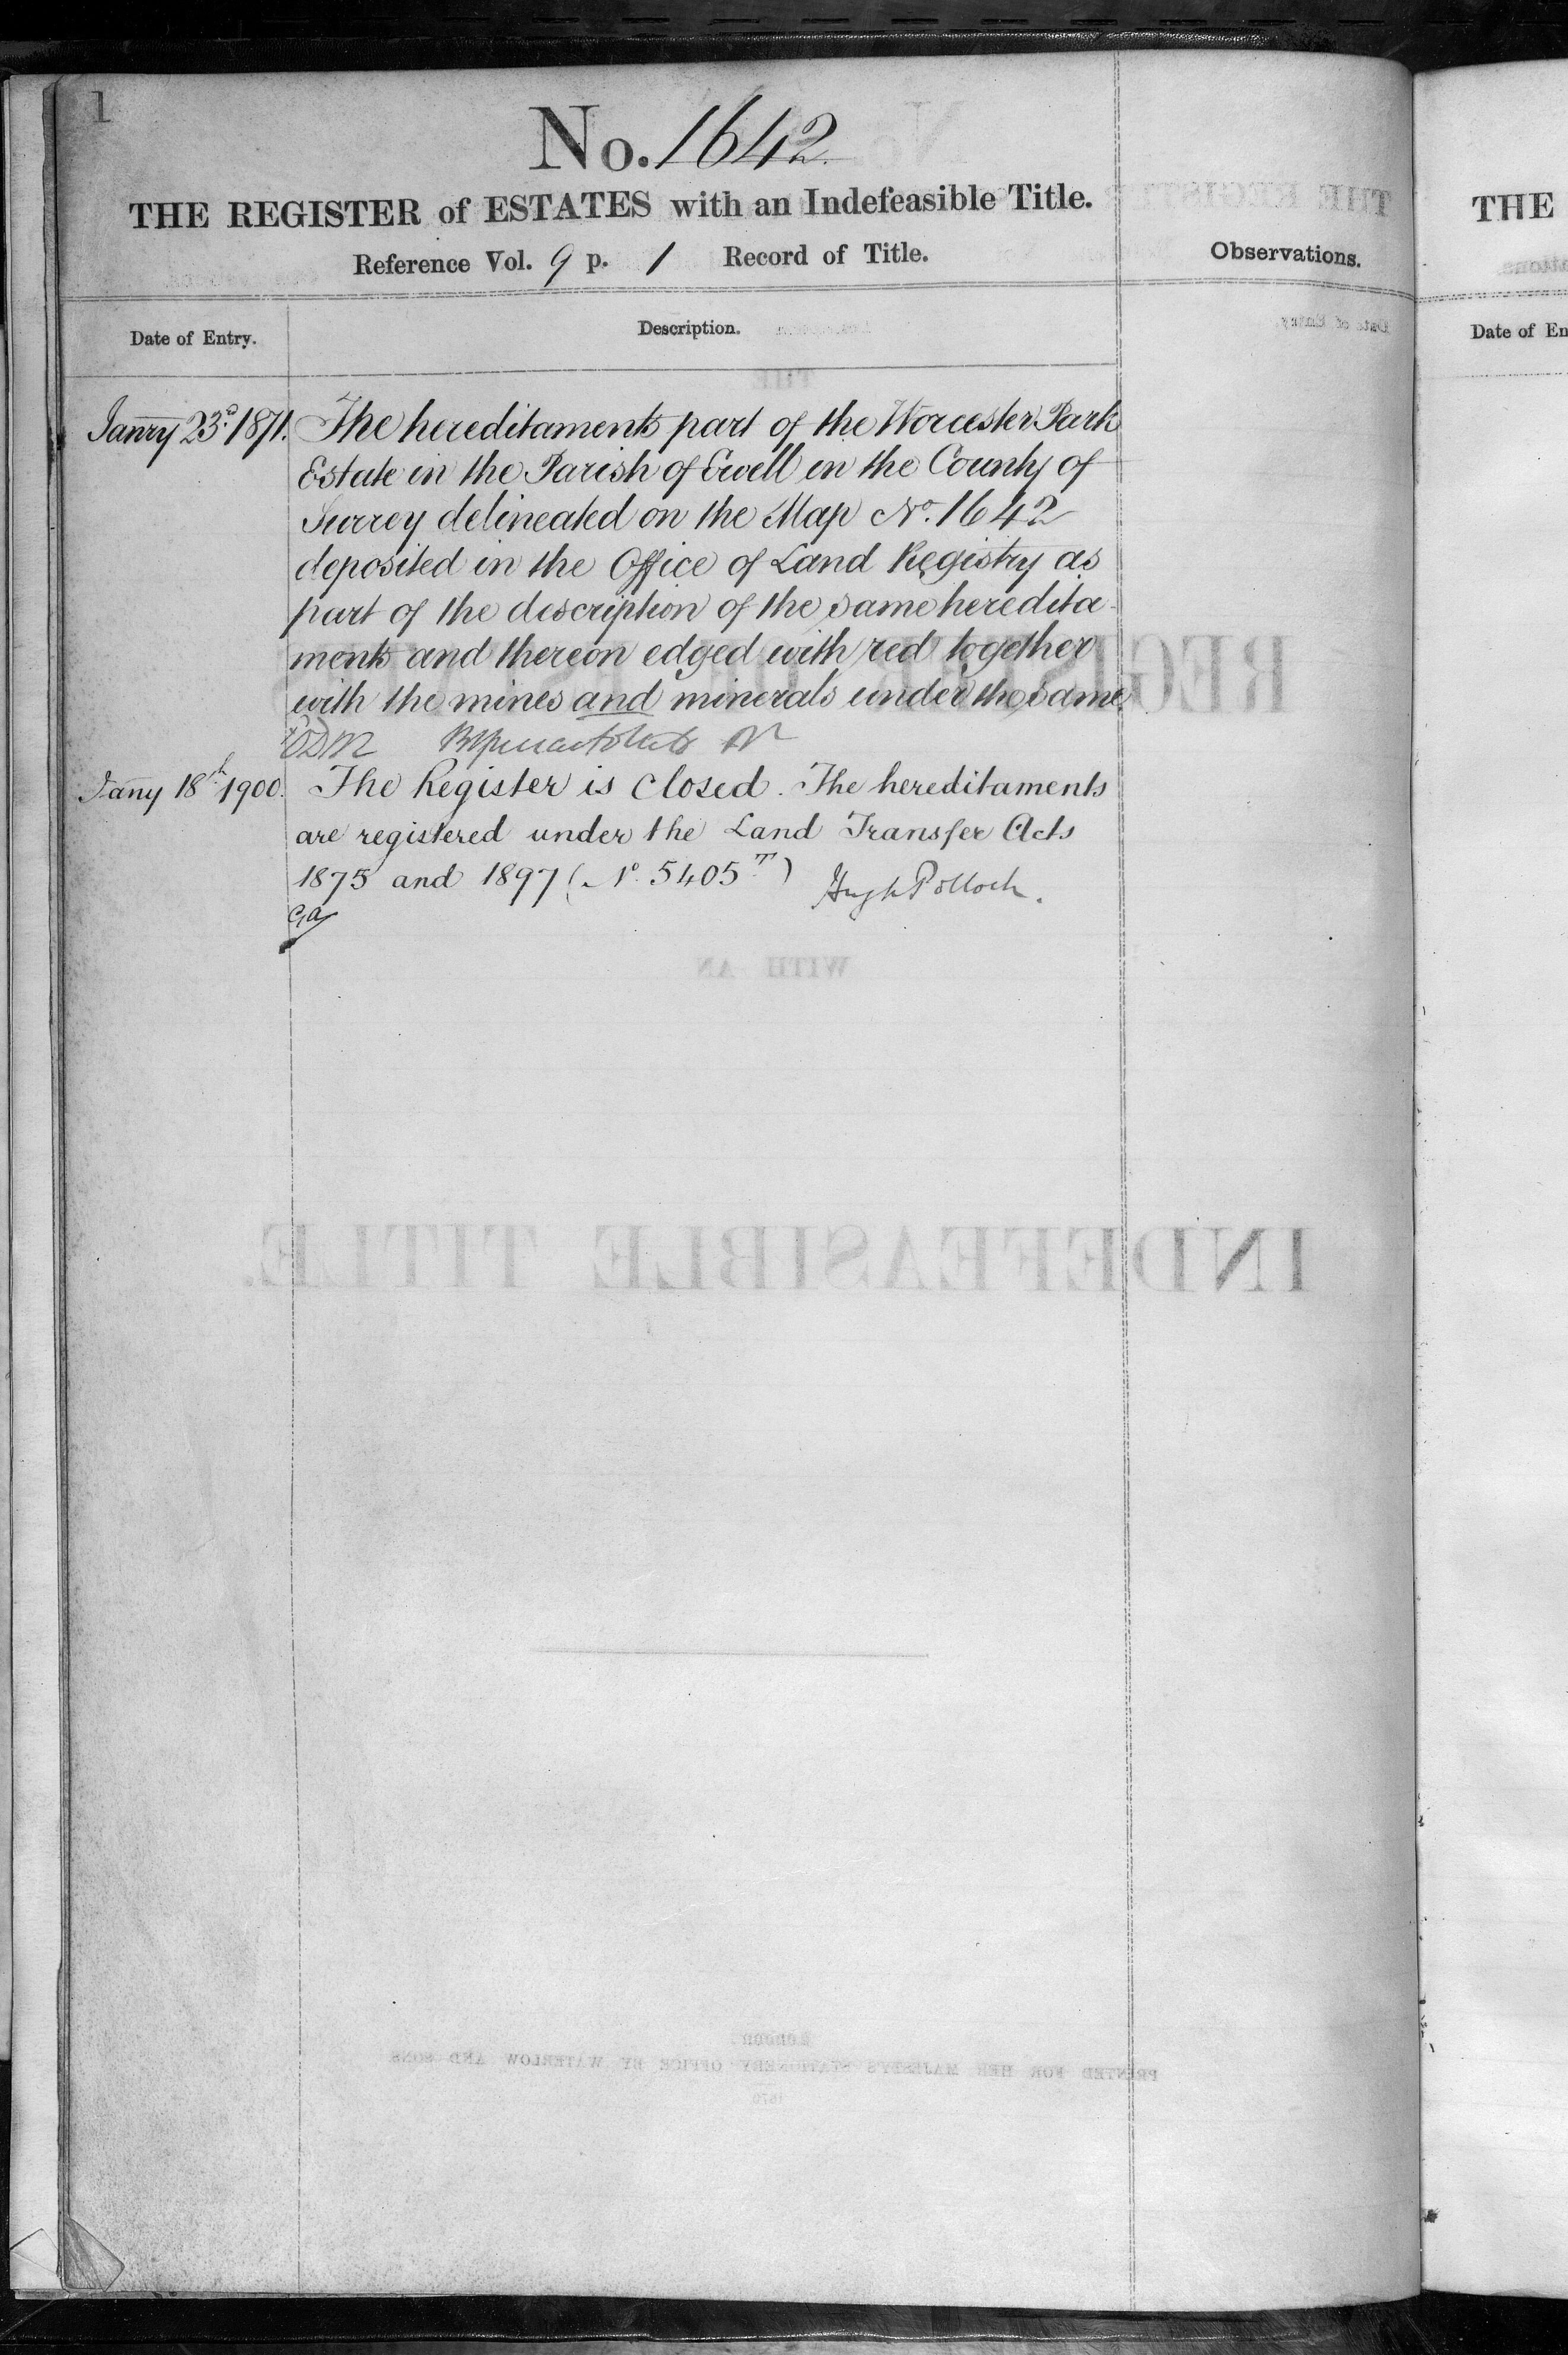 1
No. 1642
THE REGISTER of ESTATES with an Indefeasible Title.
Reference Vol. 9 p. 1 Record of Title.
Observations.
Date of Entry.
Description.
Janry 23d. 1871.
The hereditaments part of the Worcester Park
Estate in the Parish of Ewell in the County of
Surrey delineated on the Map No. 1642
deposited in the Office of Land Registry as
part of the description of the same heredita-
ments and thereon edged with red together
with the mines and minerals under the same
Jany 18th 1900.
The Register is closed. The hereditaments
are registered under the Land Transfer Acts
1875 and 1897 (No. 5405 T)
Hugh Pollock.
THE
Date of En
THE
REGISTER
WITH AN
INDEFEASIBLE TITLE.
London
PRINTED FOR HER MAJESTY'S STATIONERY OFFICE BY WATERLOW AND SONS
1870